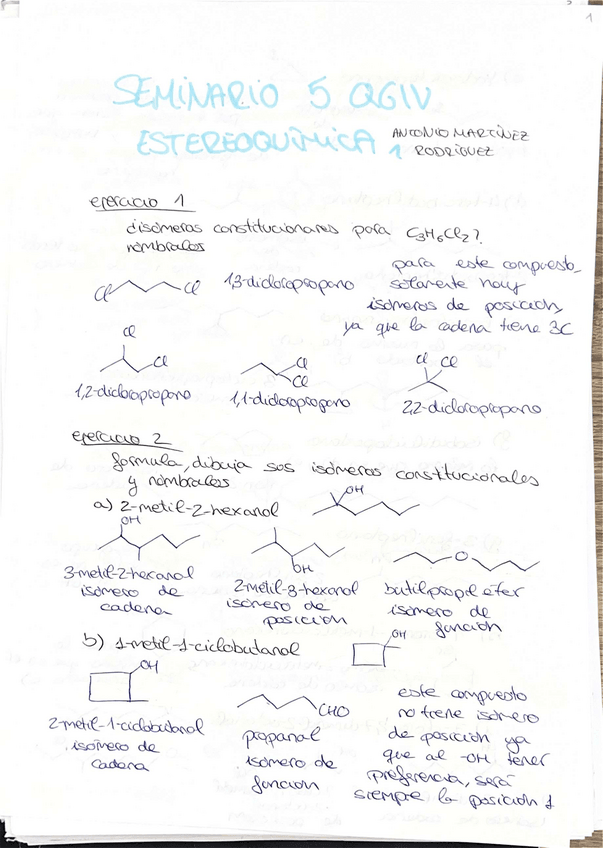 1
SEMINARIO 5 QGIV
ESTEREOQUÍMICA 1
ANTONIO MARTÍNEZ
RODRÍGUEZ
ejercicio 1
¿isómeros constitucionares para C3H6Cl2?
nómbralos
Cl Cl 1,3-dicloropropano
para este compuesto,
solamente hay
isómeros de posición,
ya que la cadena tiene 3C
Cl
Cl
1,2-dicloropropano
Cl
Cl
1,1-dicloropropano
Cl Cl
2,2-dicloropropano
ejercicio 2
formula, dibuja sos isómeros constitucionales
y nómbralos
a) 2-metil-2-hexanol
OH
OH
3-metil-2-hexanol
isómero de
cadena
OH
2-metil-3-hexanol
isómero de
posición
O
butilpropil éter
isómero de
función
b) 1-metil-1-ciclobutanol
OH
OH
2-metil-1-ciclobutanol
isómero de
cadena
CHO
propanal
isómero de
función
este compuesto
no tiene isómero
de posición ya
que al -OH tener
preferencia, será
siempre la posición 1